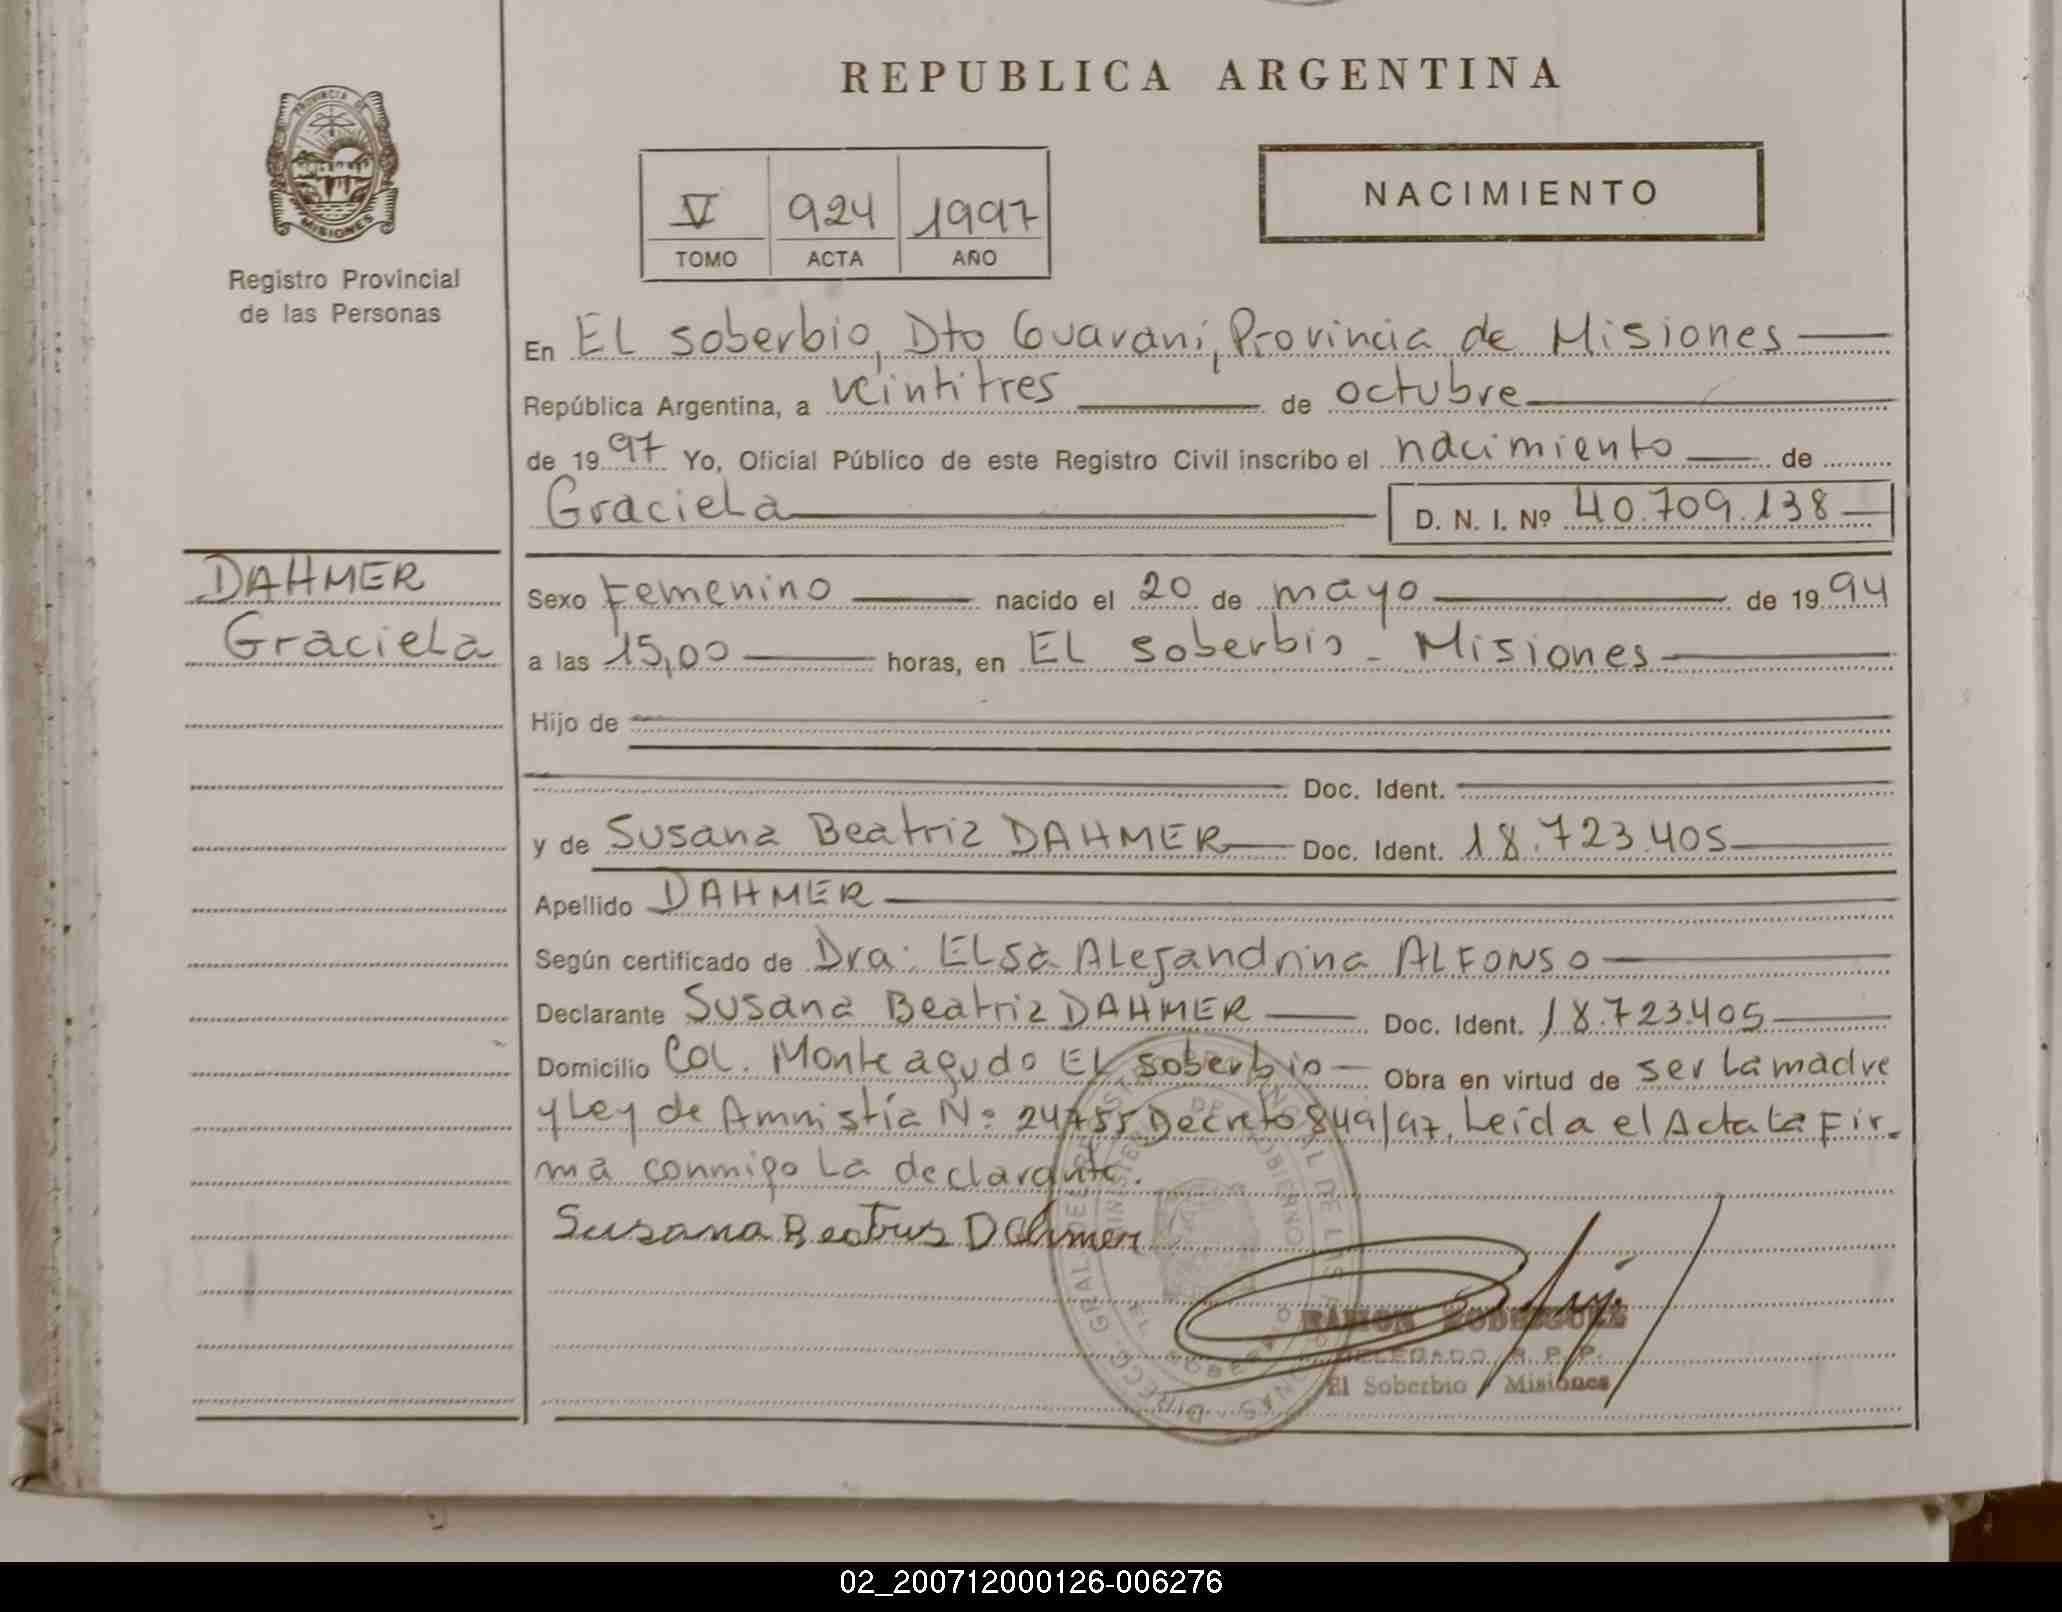 REPUBLICA ARGENTINA
PROVINCIA DE
MISIONES
Registro Provincial
de las Personas
V 924 1997
TOMO ACTA AÑO
NACIMIENTO
En El Soberbio, Dto Guaraní, Provincia de Misiones
República Argentina, a veintitres de octubre
de 1997 Yo, Oficial Público de este Registro Civil inscribo el nacimiento de
Graciela D. N. I. Nº 40.709.138
DAHMER
Graciela
Sexo Femenino nacido el 20 de mayo de 1994
a las 15,00 horas, en El Soberbio - Misiones
Hijo de
Doc. Ident.
y de Susana Beatriz DAHMER Doc. Ident. 18.723.405
Apellido DAHMER
Según certificado de Dra: Elsa Alejandrina ALFONSO
Declarante Susana Beatriz DAHMER Doc. Ident. 18.723.405
Domicilio Col. Monteagudo El Soberbio Obra en virtud de ser la madre
y Ley de Amnistía Nº 24755 Decreto 849/97. Leída el Acta la Fir-
ma conmigo la declarante.
Susana Beatris Dahmer
RAMON RODRIGUEZ
DELEGADO R. P. P.
El Soberbio Misiones
02_200712000126-006276